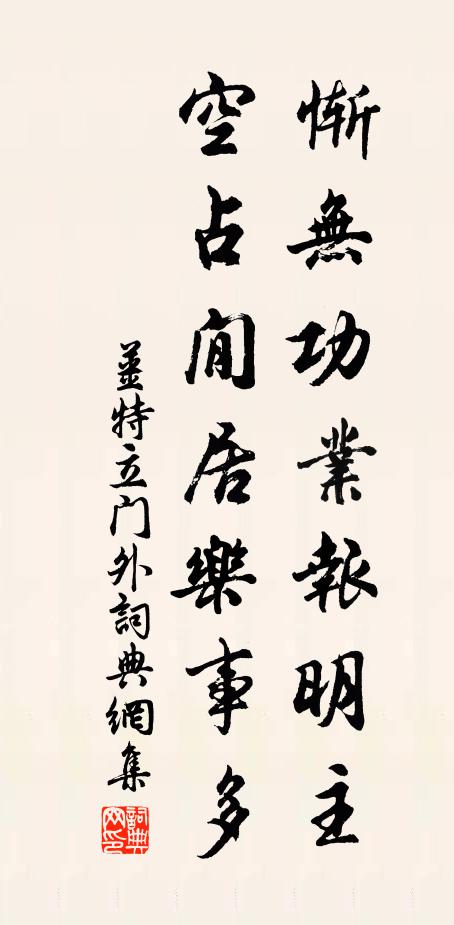 慚無功業報明主
空占閒居樂事多
薑特立门外詞典網集
詞典网印